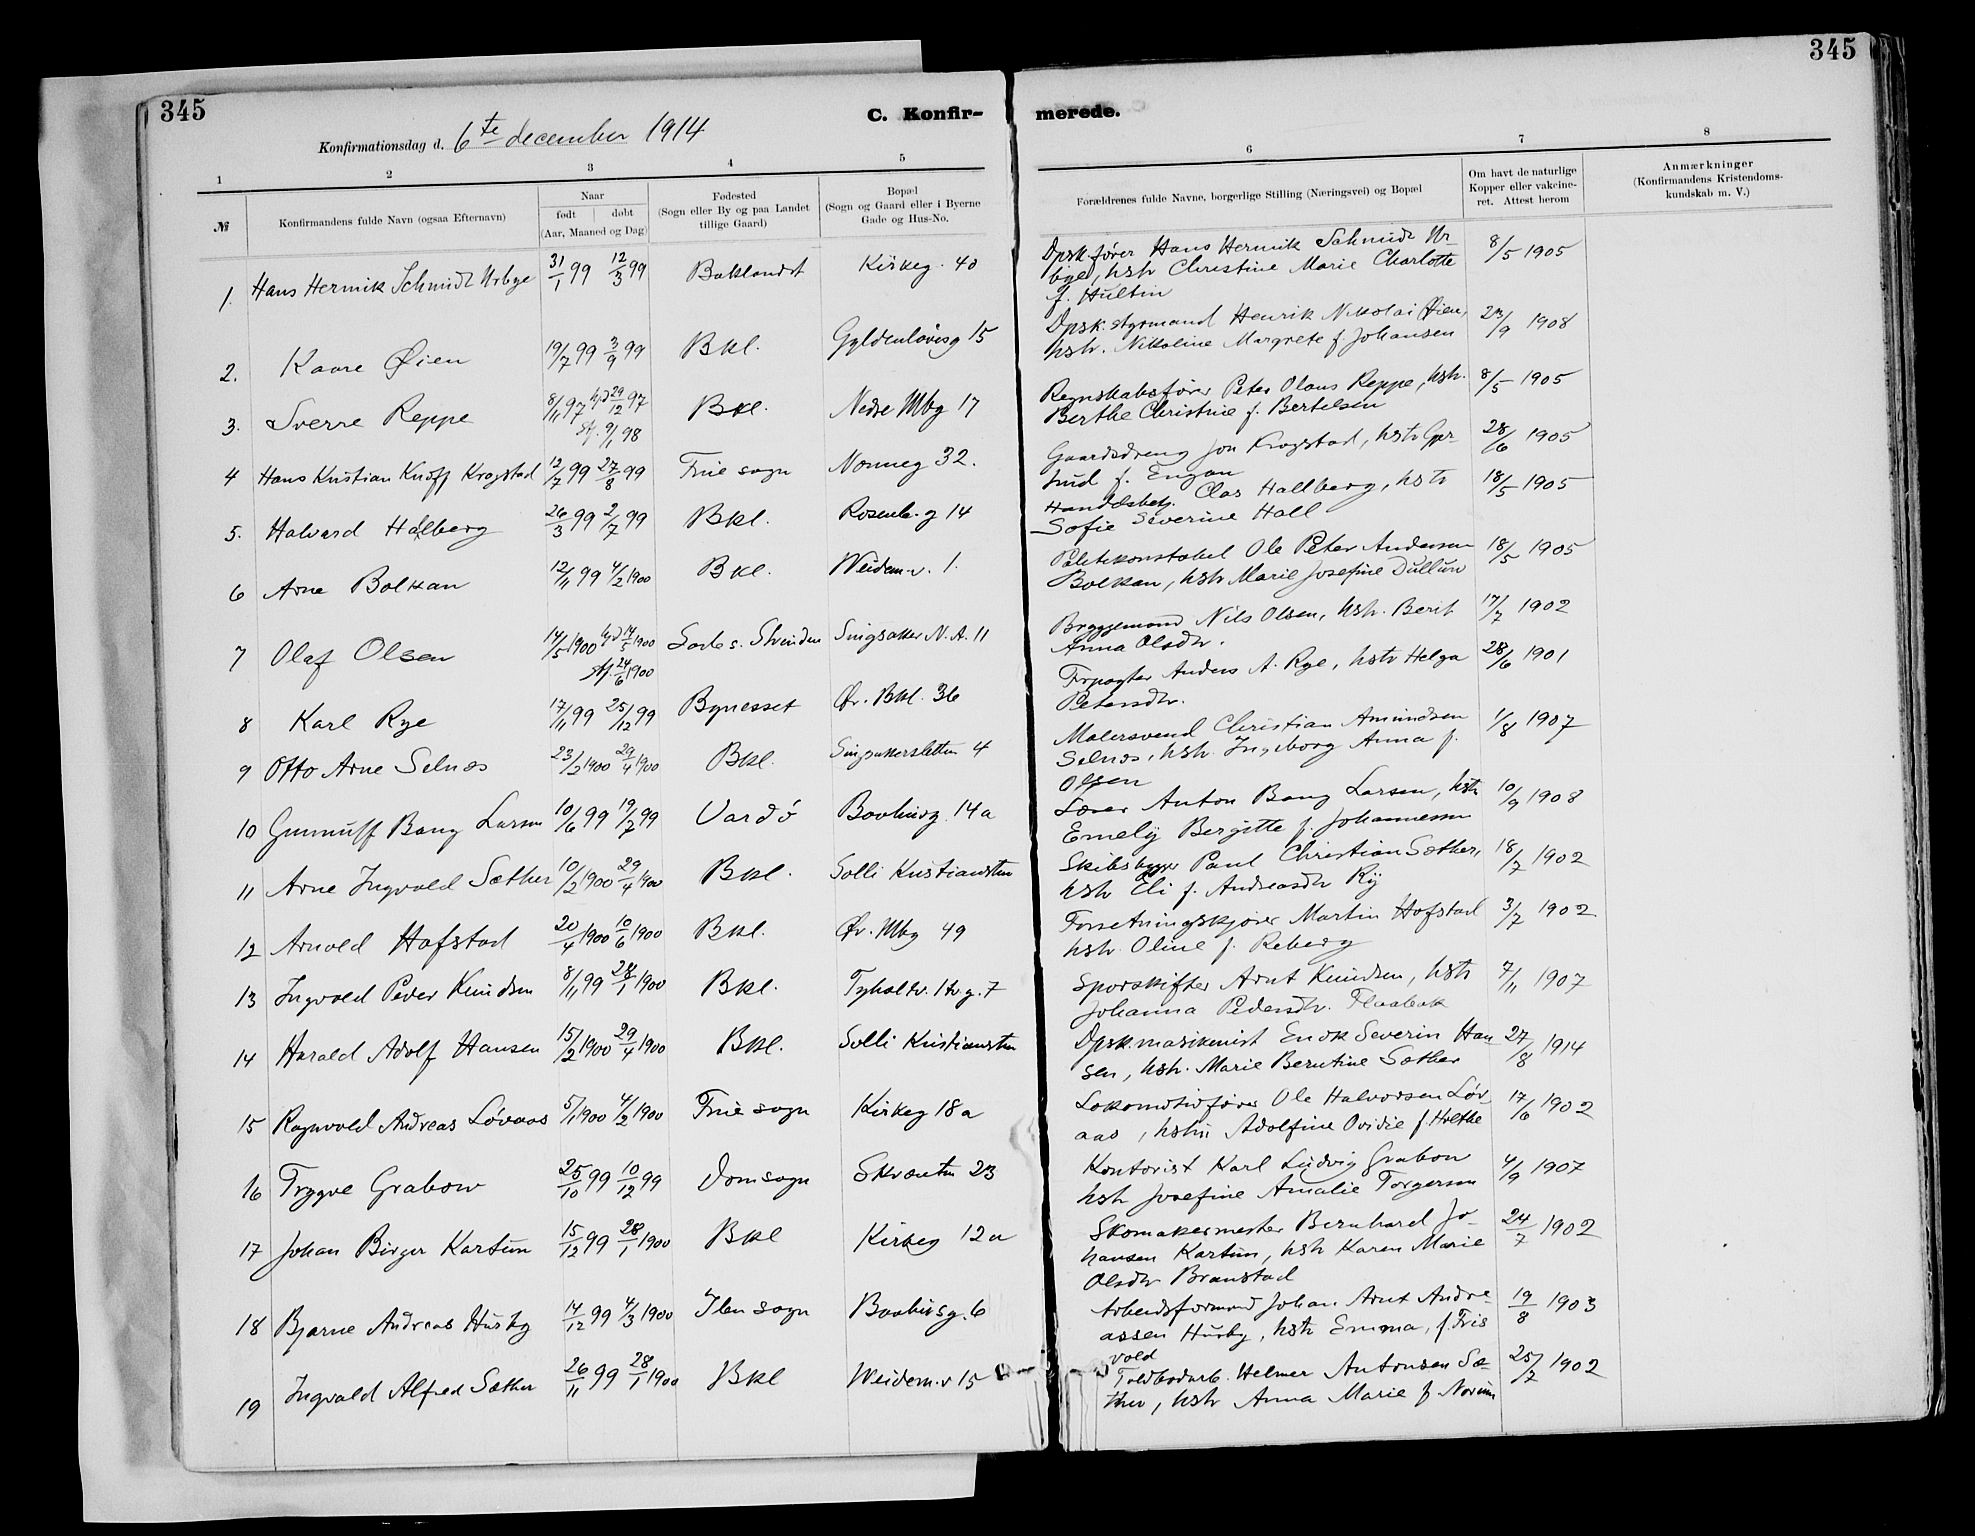 345
345
C. Konfir-
merede.
Konfirmationsdag d. 6te december 1914
1
2
3
4
5
6
7
8
№
Konfirmandens fulde Navn (ogsaa Efternavn)
Naar
født | døbt
(Aar, Maaned og Dag)
Fødested
(Sogn eller By og paa Landet
tillige Gaard)
Bopæl
(Sogn og Gaard eller i Byerne
Gade og Hus-No.
Forældrenes fulde Navne, borgerlige Stilling (Næringsvei) og Bopæl
Om havt de naturlige
Kopper eller vakcine-
ret. Attest herom
Anmærkninger
(Konfirmandens Kristendoms-
kundskab m. V.)
1. Hans Hermik Schmidt Urbye 31/1 99 12/3 99 Baklandet Kirkeg. 40
Dpsk.fører Hans Hermik Schmidt Ur- 8/5 1905
bye, hstr Christine Marie Charlotte
f. Hultin
2. Kaare Øien 19/7 99 3/9 99 Bkl. Gyldenløvesg 15
Dpsk. styrmand Henrik Nikolai Øien, 23/9 1908
hstr. Nikoline Margrete f. Johansen
3. Sverre Reppe 8/11 97 hjd 29/12 97 Bkl. Nedre Mbg 17
stf. 9/1 98
Regnskabsfører Peter Olaus Reppe, hstr. 8/5 1905
Berthe Christine f. Bertelsen
4 Hans Kristian Knoff Krogstad 12/7 99 27/8 99 Frue sogn Nonneg 32.
Gaardsdreng Jon Krogstad, hstr Gjer- 28/6 1905
trud f. Engan
5. Halvard Hallberg 26/3 99 2/7 99 Bkl. Rosenb. g 14
Handelsbetj. Clas Hallberg, hstr 18/5 1905
Sofie Severine Hall
6 Arne Bolkan 12/11 99 4/2 1900 Bkl. Weidem.v. 1.
Politikonstabel Ole Peter Andersen 18/5 1905
Bolkan, hstr Marie Josefine Dullum
7 Olaf Olsen 14/5 1900 hjd 14/5 1900 Sorte s. Strinden Singsaker N. A. 11
stf. 24/6 1900
Bryggemand Nils Olsen, hstr. Berit 17/7 1902
Anna Olsdtr.
8 Karl Rye 17/11 99 25/12 99 Bynesset Øv. Bkl. 36
Forpagter Anders A. Rye, hstr Helga 28/6 1901
Petersdtr.
9 Otto Arne Selnæs 23/2 1900 29/4 1900 Bkl. Singsakersletten 4
Malersvend Christian Amundsen 1/8 1907
Selnæs, hstr. Ingeborg Anna f.
Olsen
10 Gunnulf Bang Larsen 10/6 99 19/7 99 Vardö Bovbiersg. 14a
Lærer Anton Bang Larsen, hstr 10/9 1908
Emely Bergitte f. Johannesen
11 Arne Ingvald Sæther 10/2 1900 29/4 1900 Bkl. Solli Kristiansten
Skibsbygger Paul Christian Sæther, 18/7 1902
hstr Eli f. Andreasdtr Ry
12 Arnold Hofstad 20/4 1900 10/6 1900 Bkl. Øv. Mbg 49
Forretningskjører Martin Hofstad 3/7 1902
hstr. Oline f. Reberg
13 Ingvald Peder Knudsen 8/11 99 28/1 1900 Bkl. Tyholtv. 1 tv. g. 7
Sporskifter Arnt Knudsen, hstr 7/11 1907
Johanna Pedersdtr.
14 Harald Adolf Hansen 15/2 1900 29/4 1900 Bkl. Solli Kristiansten
Dpsk.maskinist Enok Severin Han 27/8 1914
sen, hstr. Marie Berntine Sæther
15 Ragnvald Andreas Lövaas 5/1 1900 4/2 1900 Frue sogn Kirkeg 18a
Lokomotivfører Ole Halvorsen Löv 17/6 1902
aas, hstr Adolfine Ovidie f. Holthe
16 Trygve Grabow 25/10 99 10/12 99 Domsogn Skrænten 23
Kontorist Karl Ludvig Grabow 4/9 1907
hstr Josefine Amalie Torgersen
17 Johan Birger Kartum 15/12 99 28/1 1900 Bkl Kirkeg 12a
Skomakermester Bernhard Jo- 24/7 1902
hansen Kartum, hstr Karen Marie
Olsdtr Branstad
18 Bjarne Andreas Husby 14/12 99 4/3 1900 Ilen sogn Bovbiersg. 6
Arbeidsformand Johan Arnt Andre- 19/8 1903
assen Husby, hstr Emma, f. Fris
vold
19 Ingvald Alfred Sæther 26/11 99 28/1 1900 Bkl Weidem.v 15
Toldbodarb. Helmer Antonsen Sæ- 25/7 1902
ther, hstr Anna Marie f. Norum